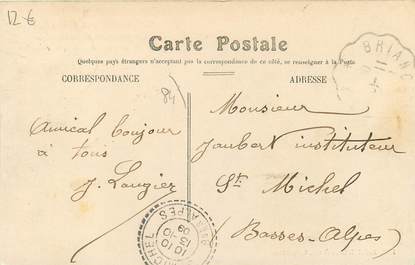 12 €
Carte Postale
Quelques pays étrangers n'acceptant pas la correspondance de ce côté, se renseigner à la Poste
CORRESPONDANCE
ADRESSE
84
BRIAN
Amical bonjour
à tous
J. Laugier
Monsieur
Jaubert instituteur
St. Michel
Basses-Alpes
MICHEL
SES ALPES
10
13 10
09